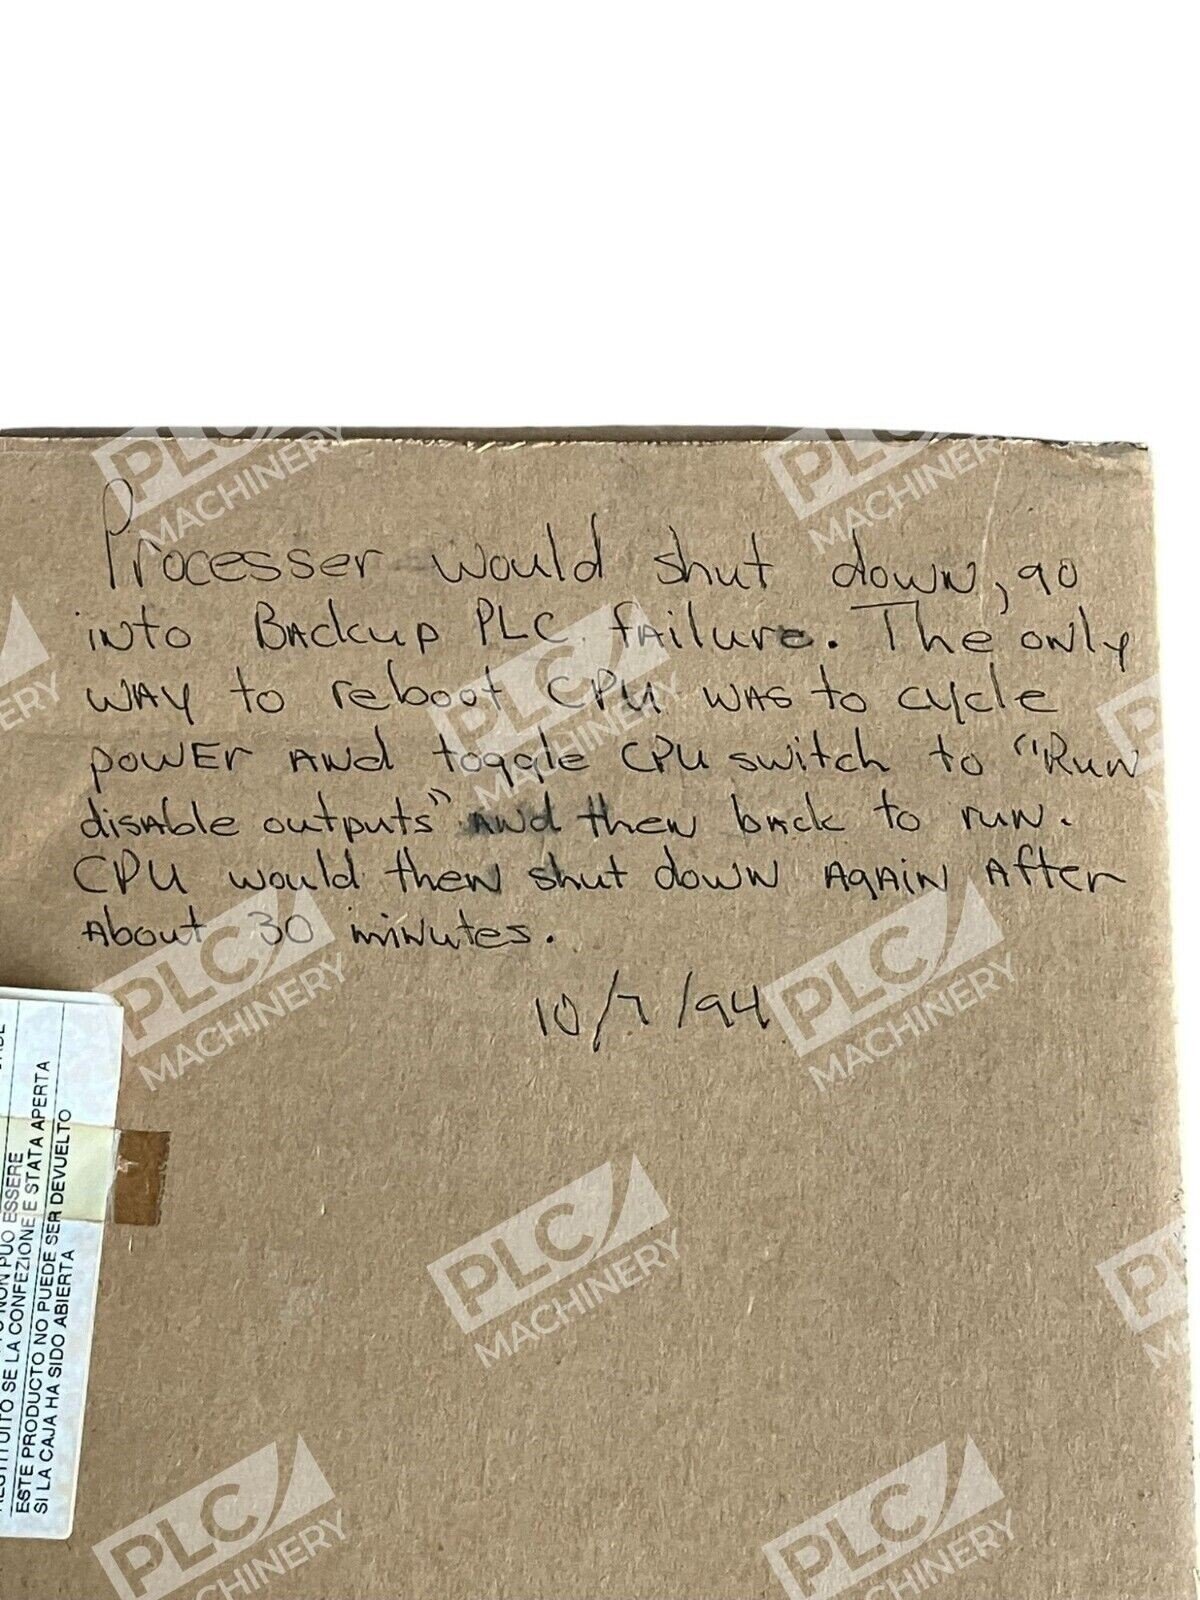 Processer would shut down, go
into Backup PLC failure. The only
way to reboot CPU was to cycle
power and toggle CPU switch to "Run
disable outputs" and then back to run.
CPU would then shut down again after
about 30 minutes.
10/7/94
SE LA CONFEZIONE E STATA APERTA
ESTE PRODUCTO NO PUEDE SER DEVUELTO
SI LA CAJA HA SIDO ABIERTA
PLC MACHINERY
PLC MACHINERY
PLC MACHINERY
PLC MACHINERY
PLC MACHINERY
PLC MACHINERY
PLC MACHINERY
PLC MACHINERY